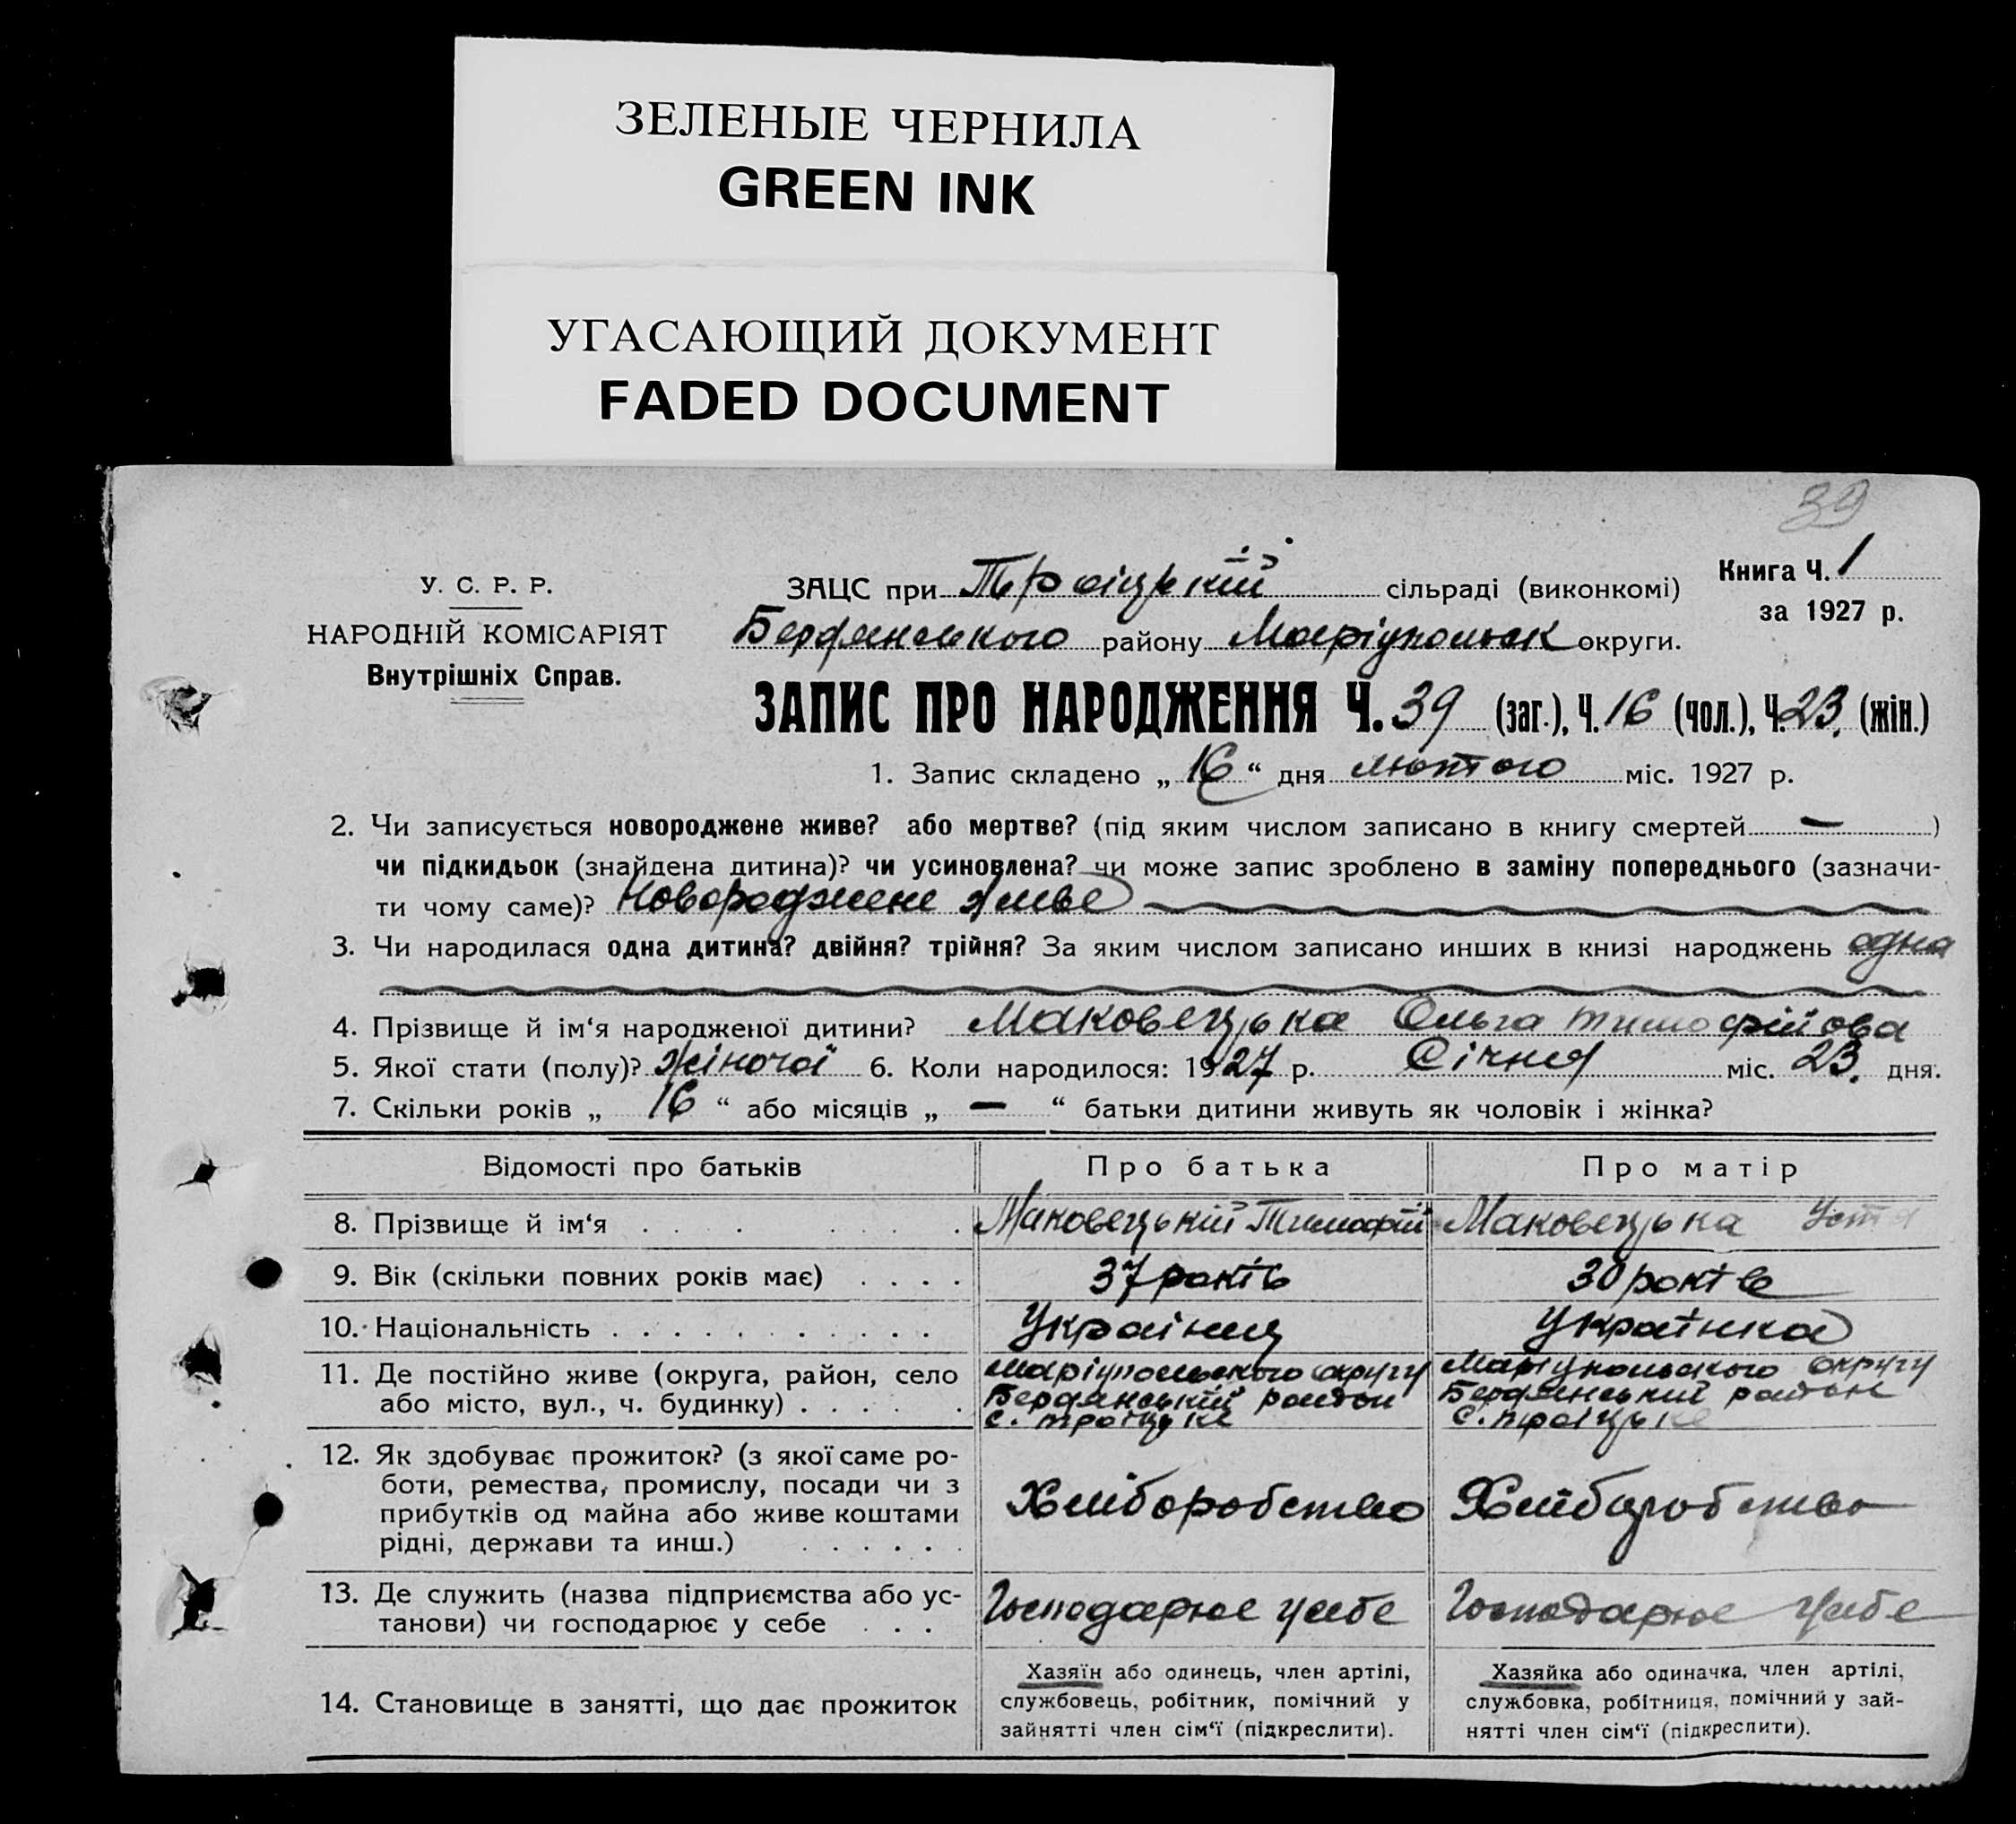 ЗЕЛЕНЫЕ ЧЕРНИЛА
GREEN INK
УГАСАЮЩИЙ ДОКУМЕНТ
FADED DOCUMENT
39
У. С. Р. Р.
НАРОДНІЙ КОМІСАРІЯТ
Внутрішніх Справ.
ЗАЦС при Троіцькій сільраді (виконкомі)
Бердянського району Маріупольськ округи.
Книга Ч. 1
за 1927 р.
ЗАПИС ПРО НАРОДЖЕННЯ Ч. 39 (заг.), Ч. 16 (чол.), Ч. 23. (жін.)
1. Запис складено „ 16 “ дня лютого міс. 1927 р.
2. Чи записується новороджене живе? або мертве? (під яким числом записано в книгу смертей — )
чи підкидьок (знайдена дитина)? чи усиновлена? чи може запис зроблено в заміну попереднього (зазначи-
ти чому саме)? Новороджене живе
3. Чи народилася одна дитина? двійня? трійня? За яким числом записано инших в книзі народжень одна
4. Прізвище й ім‘я народженої дитини? Маковецька Ольга Тимофійова
5. Якої стати (полу)? жіночої 6. Коли народилося: 1927 р. Січня міс. 23. дня.
7. Скільки років „ 16 “ або місяців „ — “ батьки дитини живуть як чоловік і жінка?
Відомості про батьків
Про батька
Про матір
8. Прізвище й ім‘я . . . . . . .
Маковецькій Тимофій
Маковецька
9. Вік (скільки повних років має) . . . .
37 років
30 років
10. Національність . . . . . . . . . . .
Украінец
Украінка
11. Де постійно живе (округа, район, село
або місто, вул., ч. будинку) . . . . . .
Маріупольського округу
Бердянській район
с. Троіцьке
Маріупольского округу
Бердянський район
с. Троіцьке
12. Як здобуває прожиток? (з якої саме ро-
боти, ремества, промислу, посади чи з
прибутків од майна або живе коштами
рідні, держави та инш.) . . . . . .
Хліборобство
Хліборобство
13. Де служить (назва підприємства або ус-
танови) чи господарює у себе . . .
Господарює у себе
Господарює у себе
14. Становище в занятті, що дає прожиток
Хазяїн або одинець, член артілі,
службовець, робітник, помічний у
зайнятті член сім‘ї (підкреслити).
Хазяйка або одиначка, член артілі,
службовка, робітниця, помічний у зай-
нятті член сім‘ї (підкреслити).